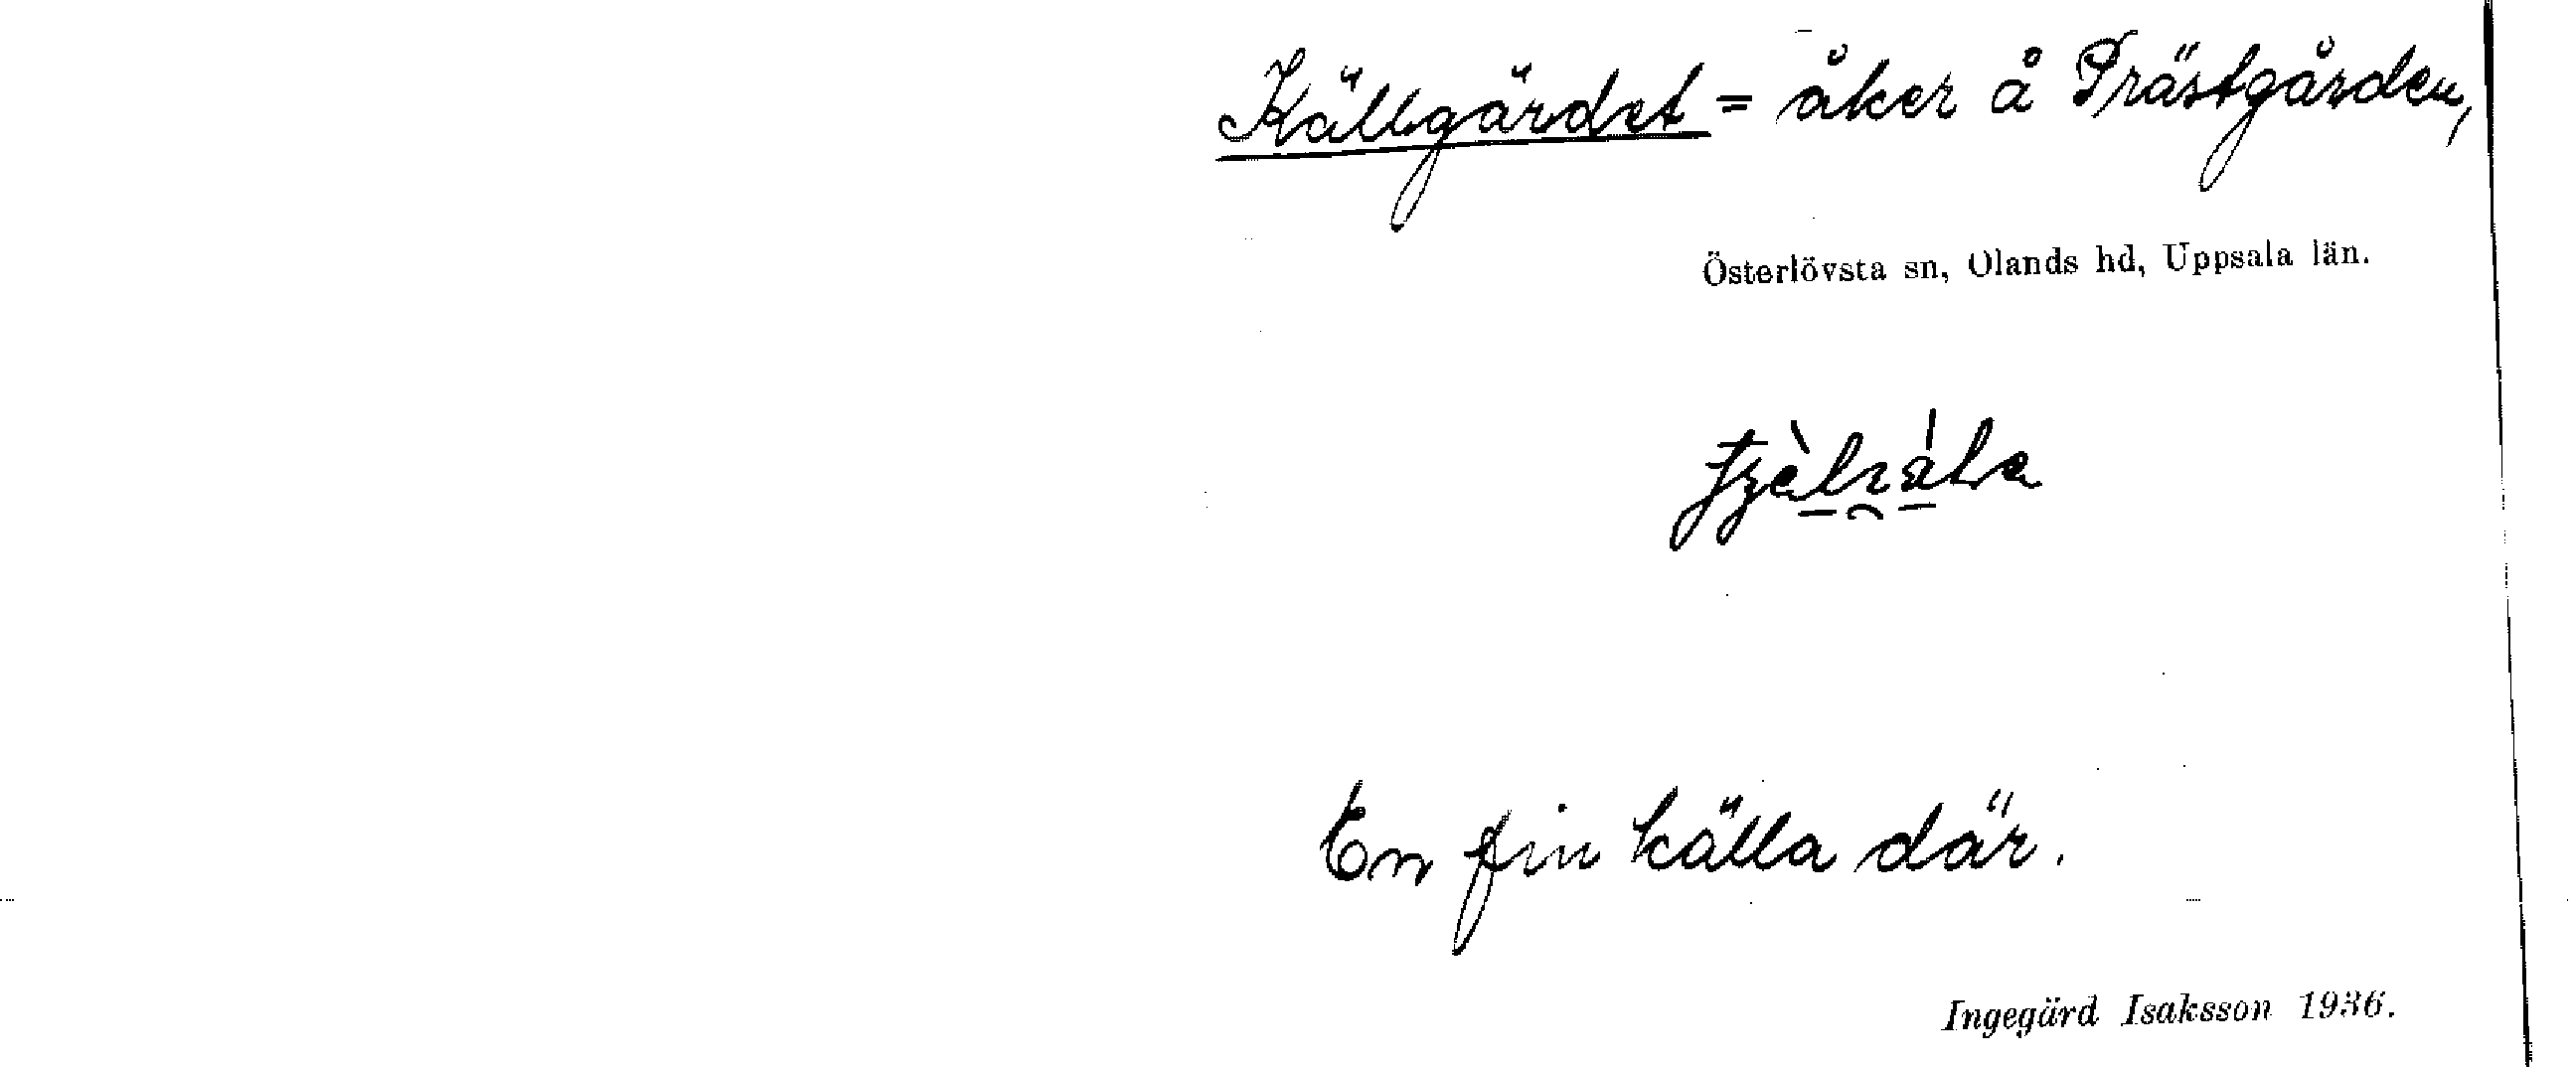 Källgärdet = åker å Prästgården,
Österlövsta sn, Olands hd, Uppsala län.
En fin källa där.
Ingegärd Isaksson 1936.